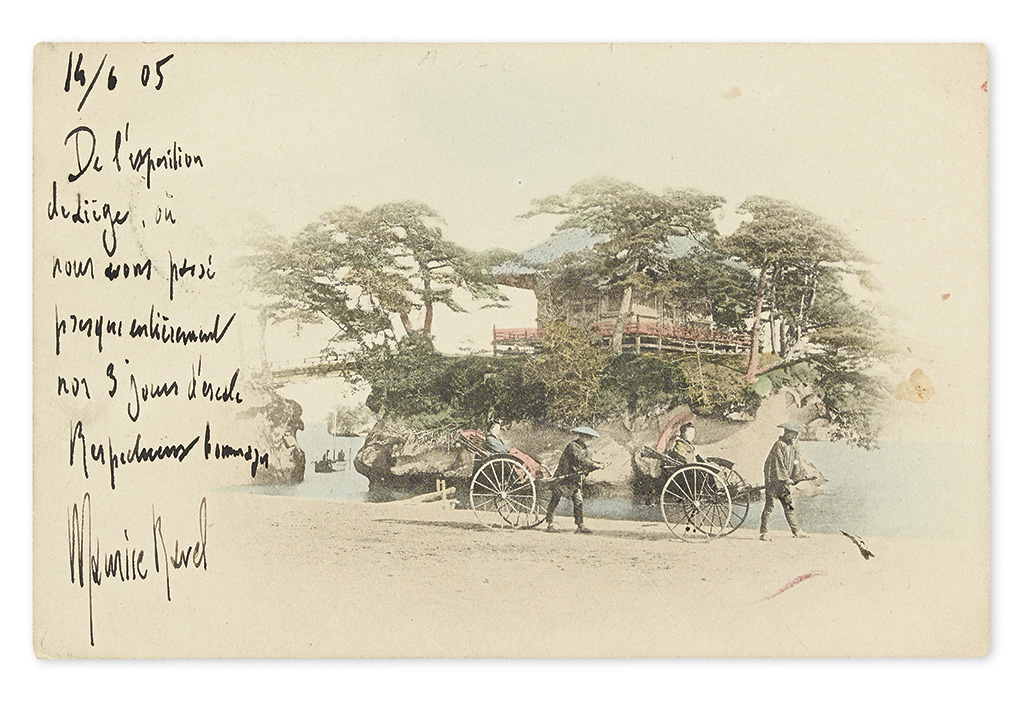 14/6 05
De l'exposition
de Liège, où
nous avons passé
presque entièrement
nos 3 jours d'escale
Respectueux hommages
Maurice Ravel